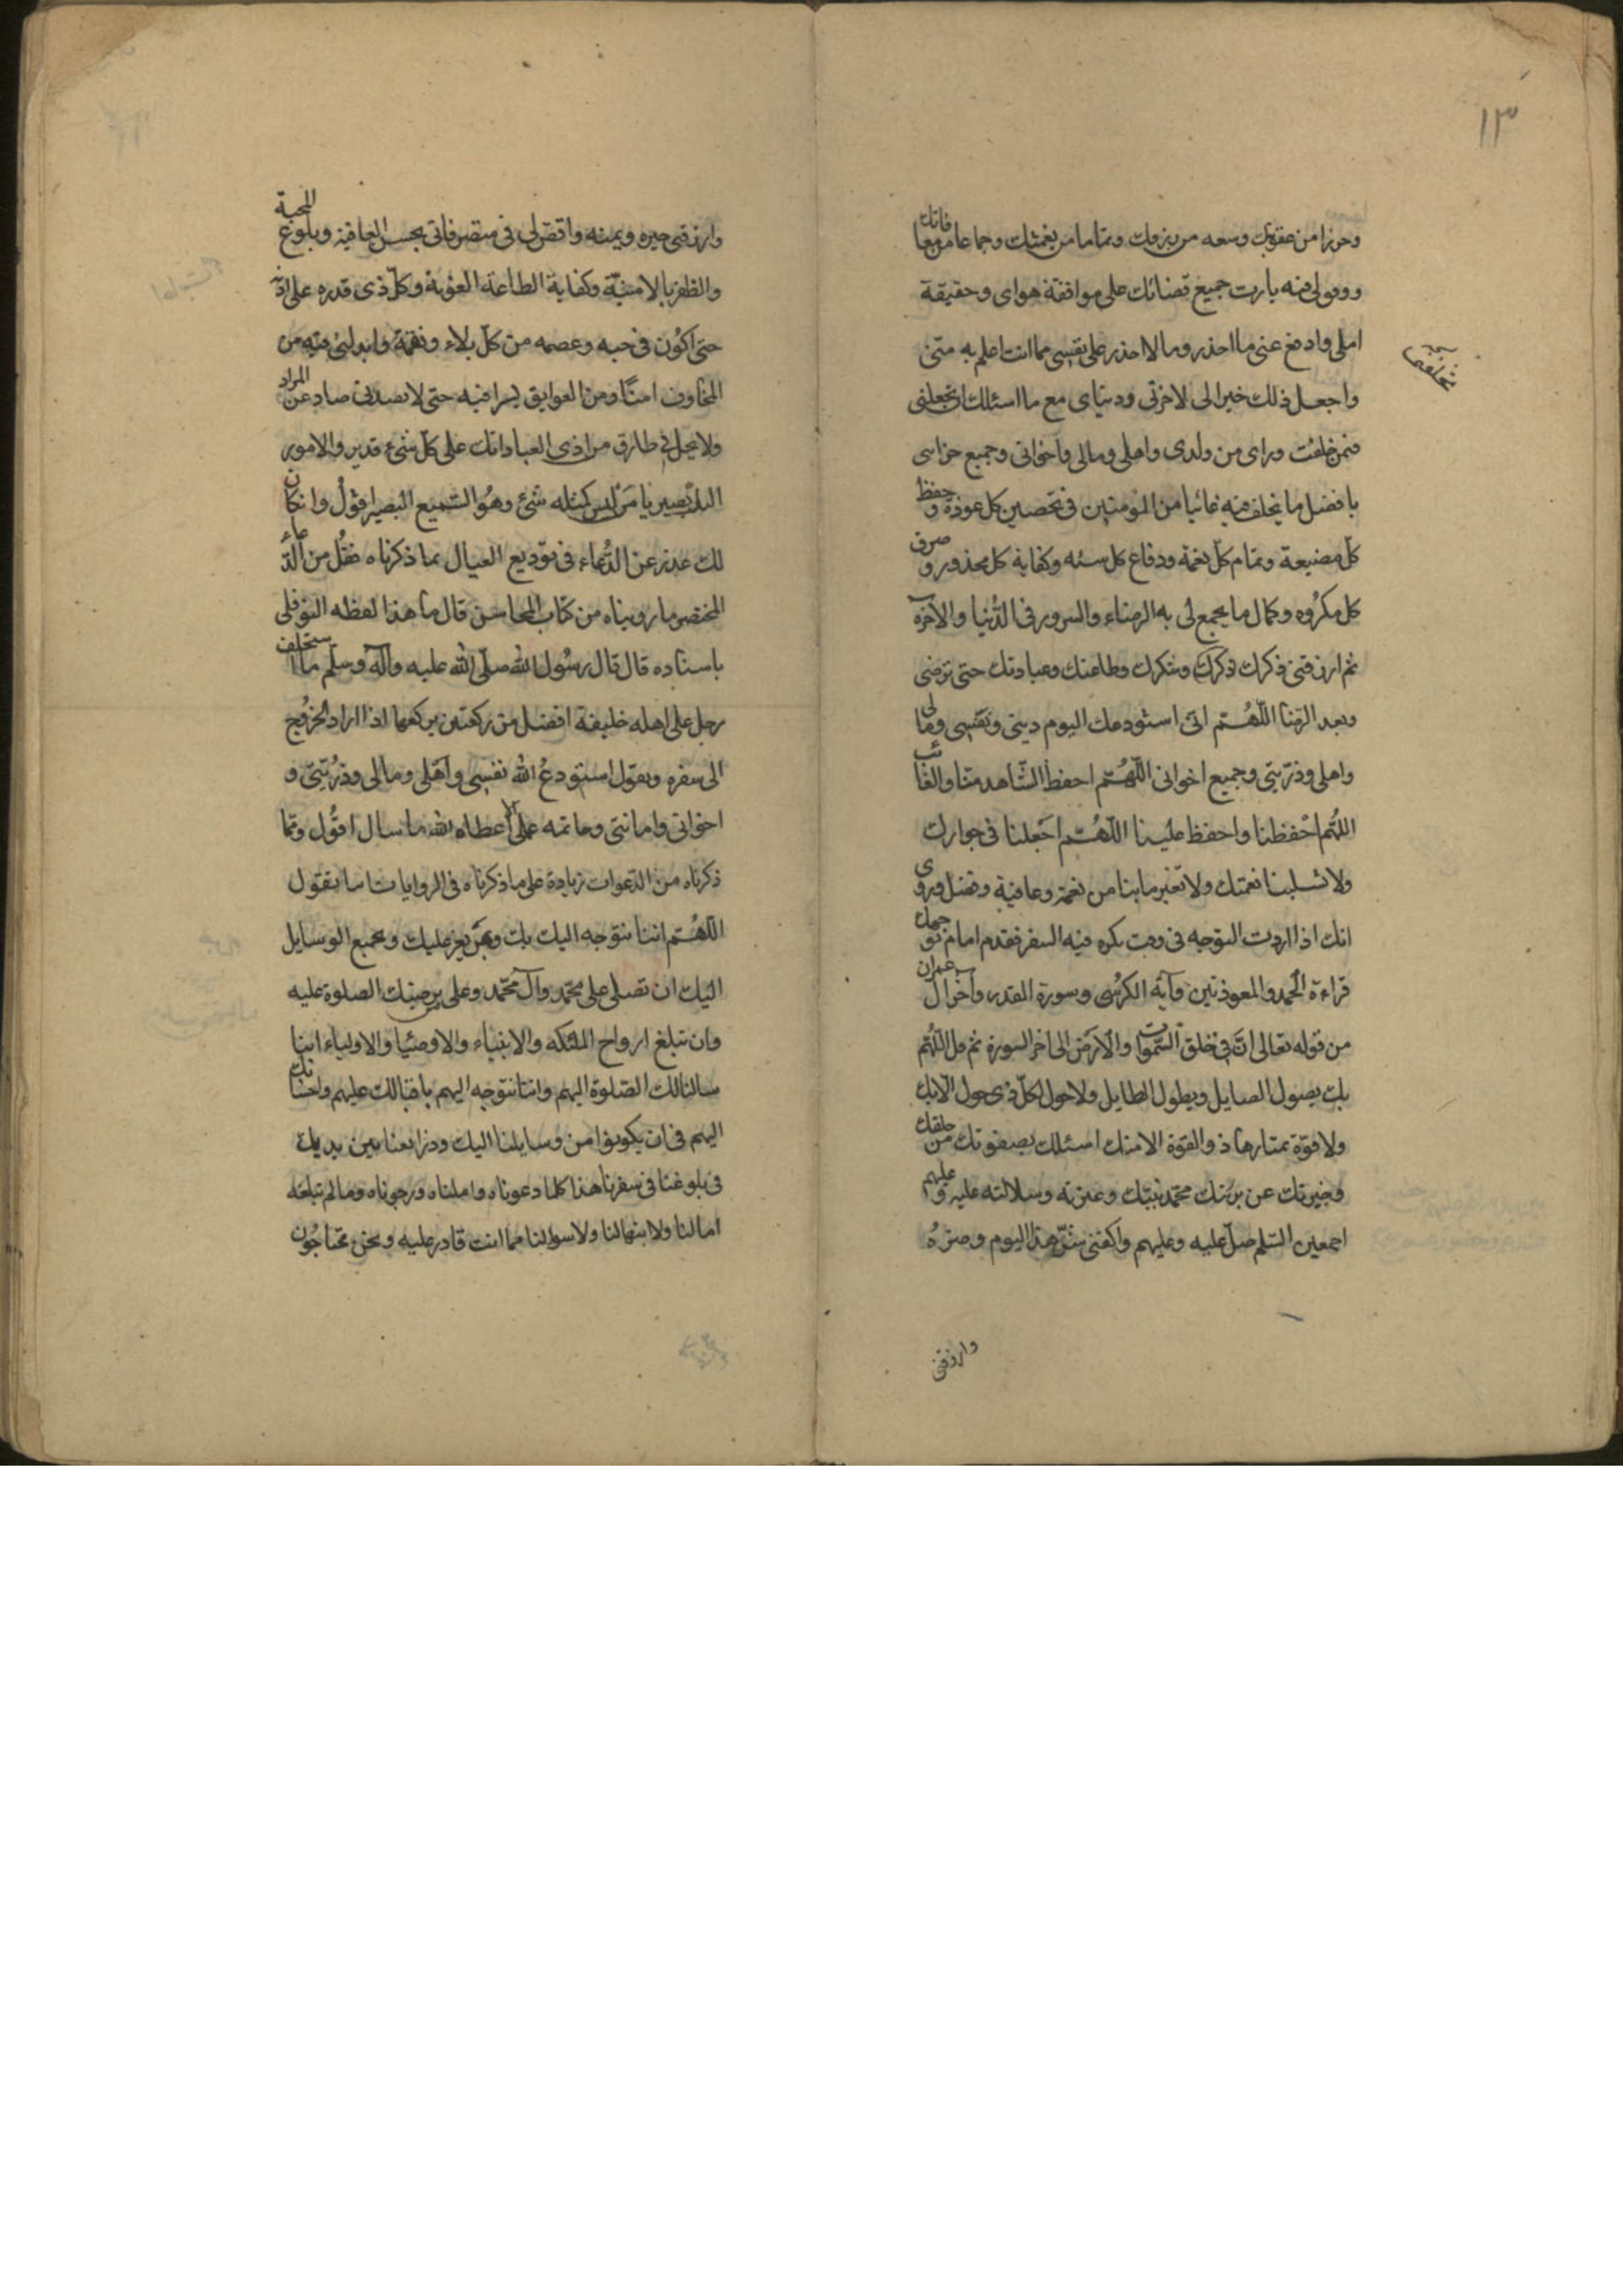 ١٣
وحرزا من عقوبتك وسعه من رزقك وتماما من نعمتك وجماعا من معافاتك
ووفق لى فيه يا رب جميع قضائك على موافقة هواى وحقيقة
املى وادفع عنى ما احذر وما لا احذر على نفسى مما انت اعلم به منى
واجعل ذلك خيرا لى لاخرتى ودنياى مع ما اسئلك ان تجعلنى
فيمن خلفت وراى من ولدى واهلى ومالى واخوانى وجميع حزانتى
بافضل ما يخلف فيه غائبا من المؤمنين فى تحصين كل عوذة وحفظ
كل مضيعة وتمام كل نعمة ودفاع كل سيئه وكفاية كل محذور وصرف
كل مكروه وكمال ما يجمع لى به الرضاء والسرور فى الدنيا والآخرة
ثم ارزقنى ذكرك وشكرك وطاعتك وعبادتك حتى ترضى
وبعد الرضا اللهم انى استودعك اليوم دينى ونفسى ومالى
واهلى وذريتى وجميع اخوانى اللهم احفظ الشاهد منا والغائب
اللهم احفظنا واحفظ علينا اللهم اجعلنا فى جوارك
ولا تسلبنا نعمتك ولا تغير ما بنا من نعمة وعافية وفضل وروى
انك اذا اردت التوجه فى وقت يكره فيه السفر فقدم امام توجهك
قراءة الحمد والمعوذتين وآية الكرسى وسورة القدر وآخر آل عمران
من قوله تعالى ان فى خلق السموات والارض الى اخر السورة ثم قل اللهم
بك يصول الصايل وبطول الطايل ولا حول لكل ذى حول الا بك
ولا قوة يمتارها ذو القوة الا منك اسئلك بصفوتك من خلقك
وخيرتك من بريتك محمد نبيك وعترته وسلالته عليه وعليهم
اجمعين السلم صل عليه وعليهم واكفنى شر هذا اليوم وضره
وارزقنى
وارزقنى خيره ويمنه واقض لى فى متصرفاتى بحسن العاقبة وبلوغ المحبة
والظفر بالامنية وكفاية الطاغية الغوية وكل ذى قدره على اذية
حتى اكون فى جنه وعصمه من كل بلاء ونقمة وابدلنى فيه من
المخاوف امنا ومن العوايق يسرا فيه حتى لا يصدنى صاد عن المراد
ولا يحل بى طارق من اذى العباد انك على كل شئ قدير والامور
اليك تصير يا من ليس كمثله شئ وهو السميع البصير اقول وان كان
لك عذر عن الدعاء فى توديع العيال بما ذكرناه فقل من الدعاء
المختصر ما رويناه من كتاب المحاسن قال ما هذا لفظه النوفلى
باسناده قال قال رسول الله صلى الله عليه وآله وسلم ما استخلف
رجل على اهله خليفة افضل من ركعتين يركعهما اذا اراد الخروج
الى سفره ويقول استودع الله نفسى واهلى ومالى وذريتى و
اخوانى وامانتى وخاتمه عملى الا اعطاه الله ما سال اقول ومما
ذكرناه من الدعوات زيادة على ما ذكرناه فى الروايات اننا نقول
اللهم اننا نتوجه اليك بك وبمن يعز عليك وبجميع الوسايل
اليك ان تصلى على محمد وآل محمد وعلى من يرضيك الصلوة عليه
وان تبلغ ارواح الملئكه والانبياء والاوصيا والاولياء اننا
سالنا لك الصلوة اليهم واننا نتوجه اليهم باقبالك عليهم واحسانك
اليهم فى ان يكونوا من وسايلنا اليك وذرايعنا بين يديك
فى بلوغنا فى سفرنا هذا كلما دعوناه واملناه ورجوناه وما لم تبلغه
امالنا ولا ابتهالنا ولا سوالنا مما انت قادر عليه ونحن محتاجون